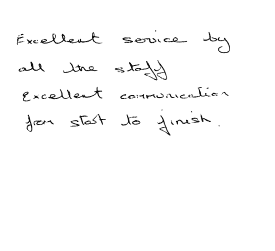 Excellent service by
all the staff
Excellent communication
from start to finish.